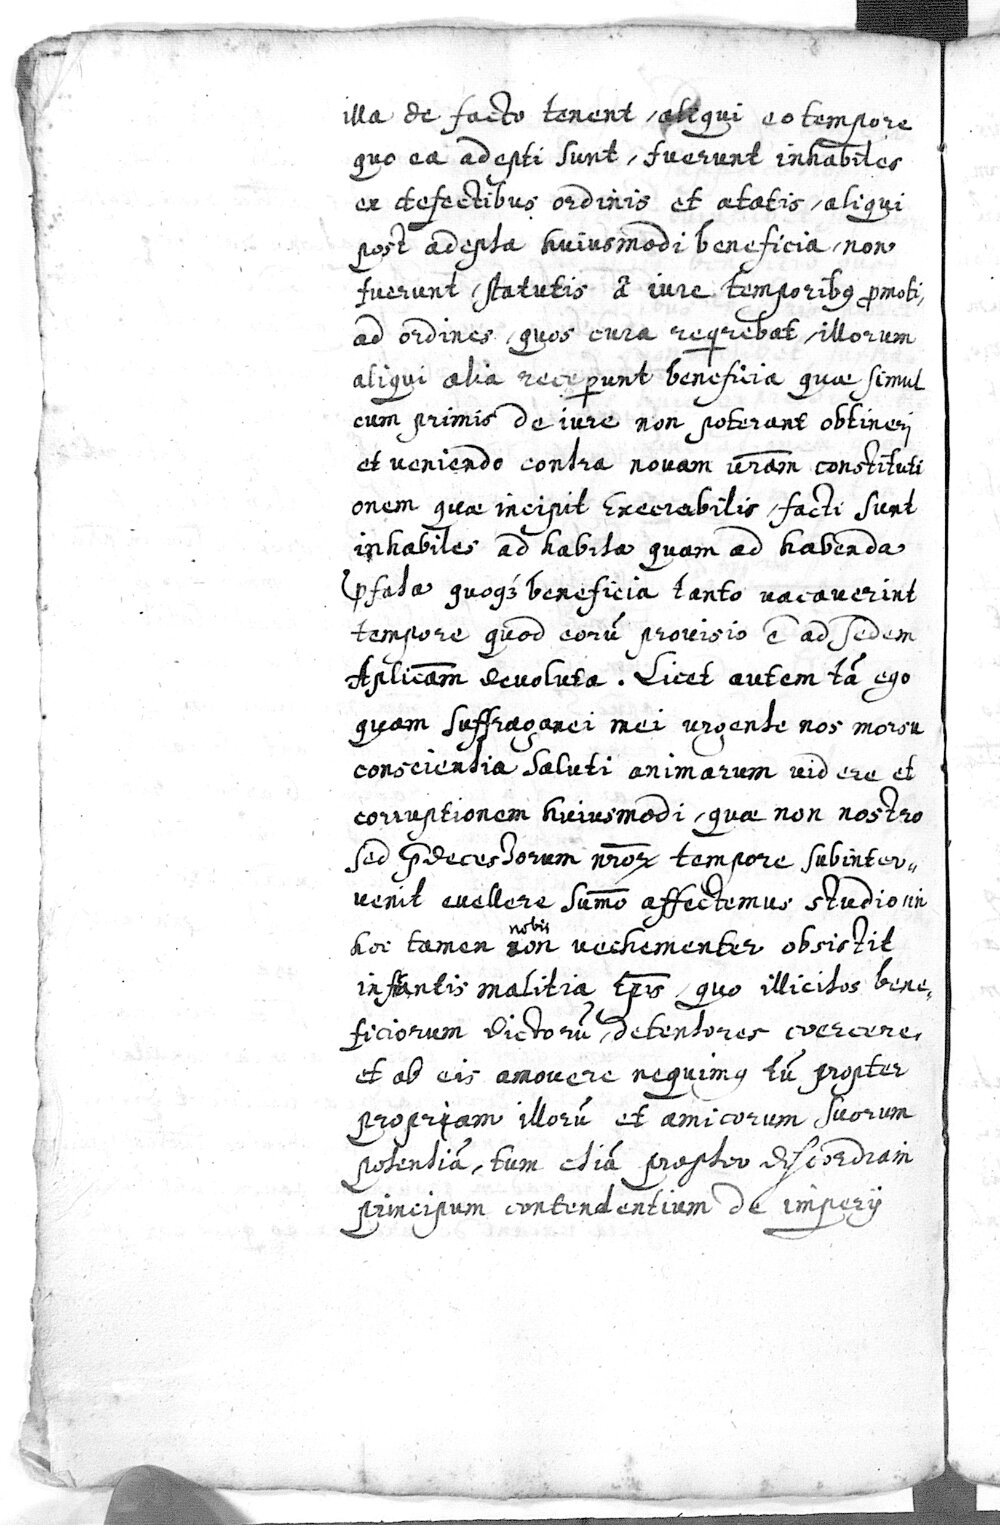 illa de facto tenent / aliqui eo tempore
quo ea adepti sunt / fuerunt inhabiles
ex defectibus ordinis et ætatis / aliqui
post adepta huiusmodi beneficia / non
fuerunt / statutis à iure temporibꝰ ꝓmoti,
ad ordines / quos cura reqrebat / illorum
aliqui alia receꝑunt beneficia quæ simul
cum primis de iure non poterant obtineri
et veniendo contra novam vr̄am constituti
onem quæ incipit Execrabilis / facti sunt
inhabiles ad habita quam ad habenda
p̄fata quoqꝫ beneficia tanto vacaverint
tempore quod corū provisio ē ad sedem
Aplicām devoluta . Licet autem tā ego
quam suffraganei mei urgente nos morsu
conscientia saluti animarum videre et
corruptionem huiusmodi / quæ non nostro
sed p̄decessorum nr̄oꝝ tempore subinter„
venit evellere sum̄o affectemus studio in
hoc tamen non nobis vechementer obsistit
infantis malitia tp̄is / quo illicitos bene„
ficiorum dictorū / detentores coercere,
et ab eis amovere nequimꝰ tū propter
propriam illorū et amicorum suorum
potentiā / tum etiā propter discordiam
principum contendentium de imperij